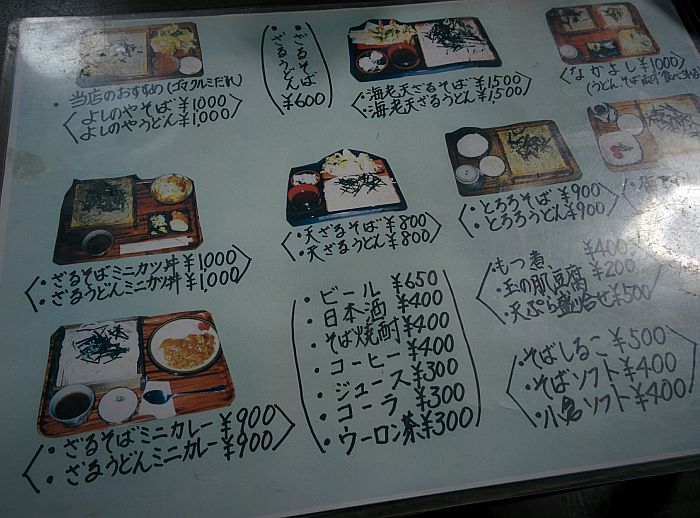 ・当店のおすすめ(ゴマクルミだれ)
よしのやそば ¥1,000
よしのやうどん ¥1,000
・ざるそば
・ざるうどん
¥600
・海老天ざるそば ¥1,500
・海老天ざるうどん ¥1,500
・なかよし ¥1,000
(うどん、そば両方
・ざるそばミニカツ丼 ¥1,000
・ざるうどんミニカツ丼 ¥1,000
・天ざるそば ¥800
・天ざるうどん ¥800
・とろろそば ¥900
・とろろうどん ¥900
・ざるそばミニカレー ¥900
・ざるうどんミニカレー ¥900
・ビール ¥650
・日本酒 ¥400
・そば焼酎 ¥400
・コーヒー ¥400
・ジュース ¥300
・コーラ ¥300
・ウーロン茶 ¥300
・もつ煮 ¥400
・玉の肌豆腐 ¥200
・天ぷら盛り合せ ¥500
・そばしるこ ¥500
・そばソフト ¥400
・小倉ソフト ¥400